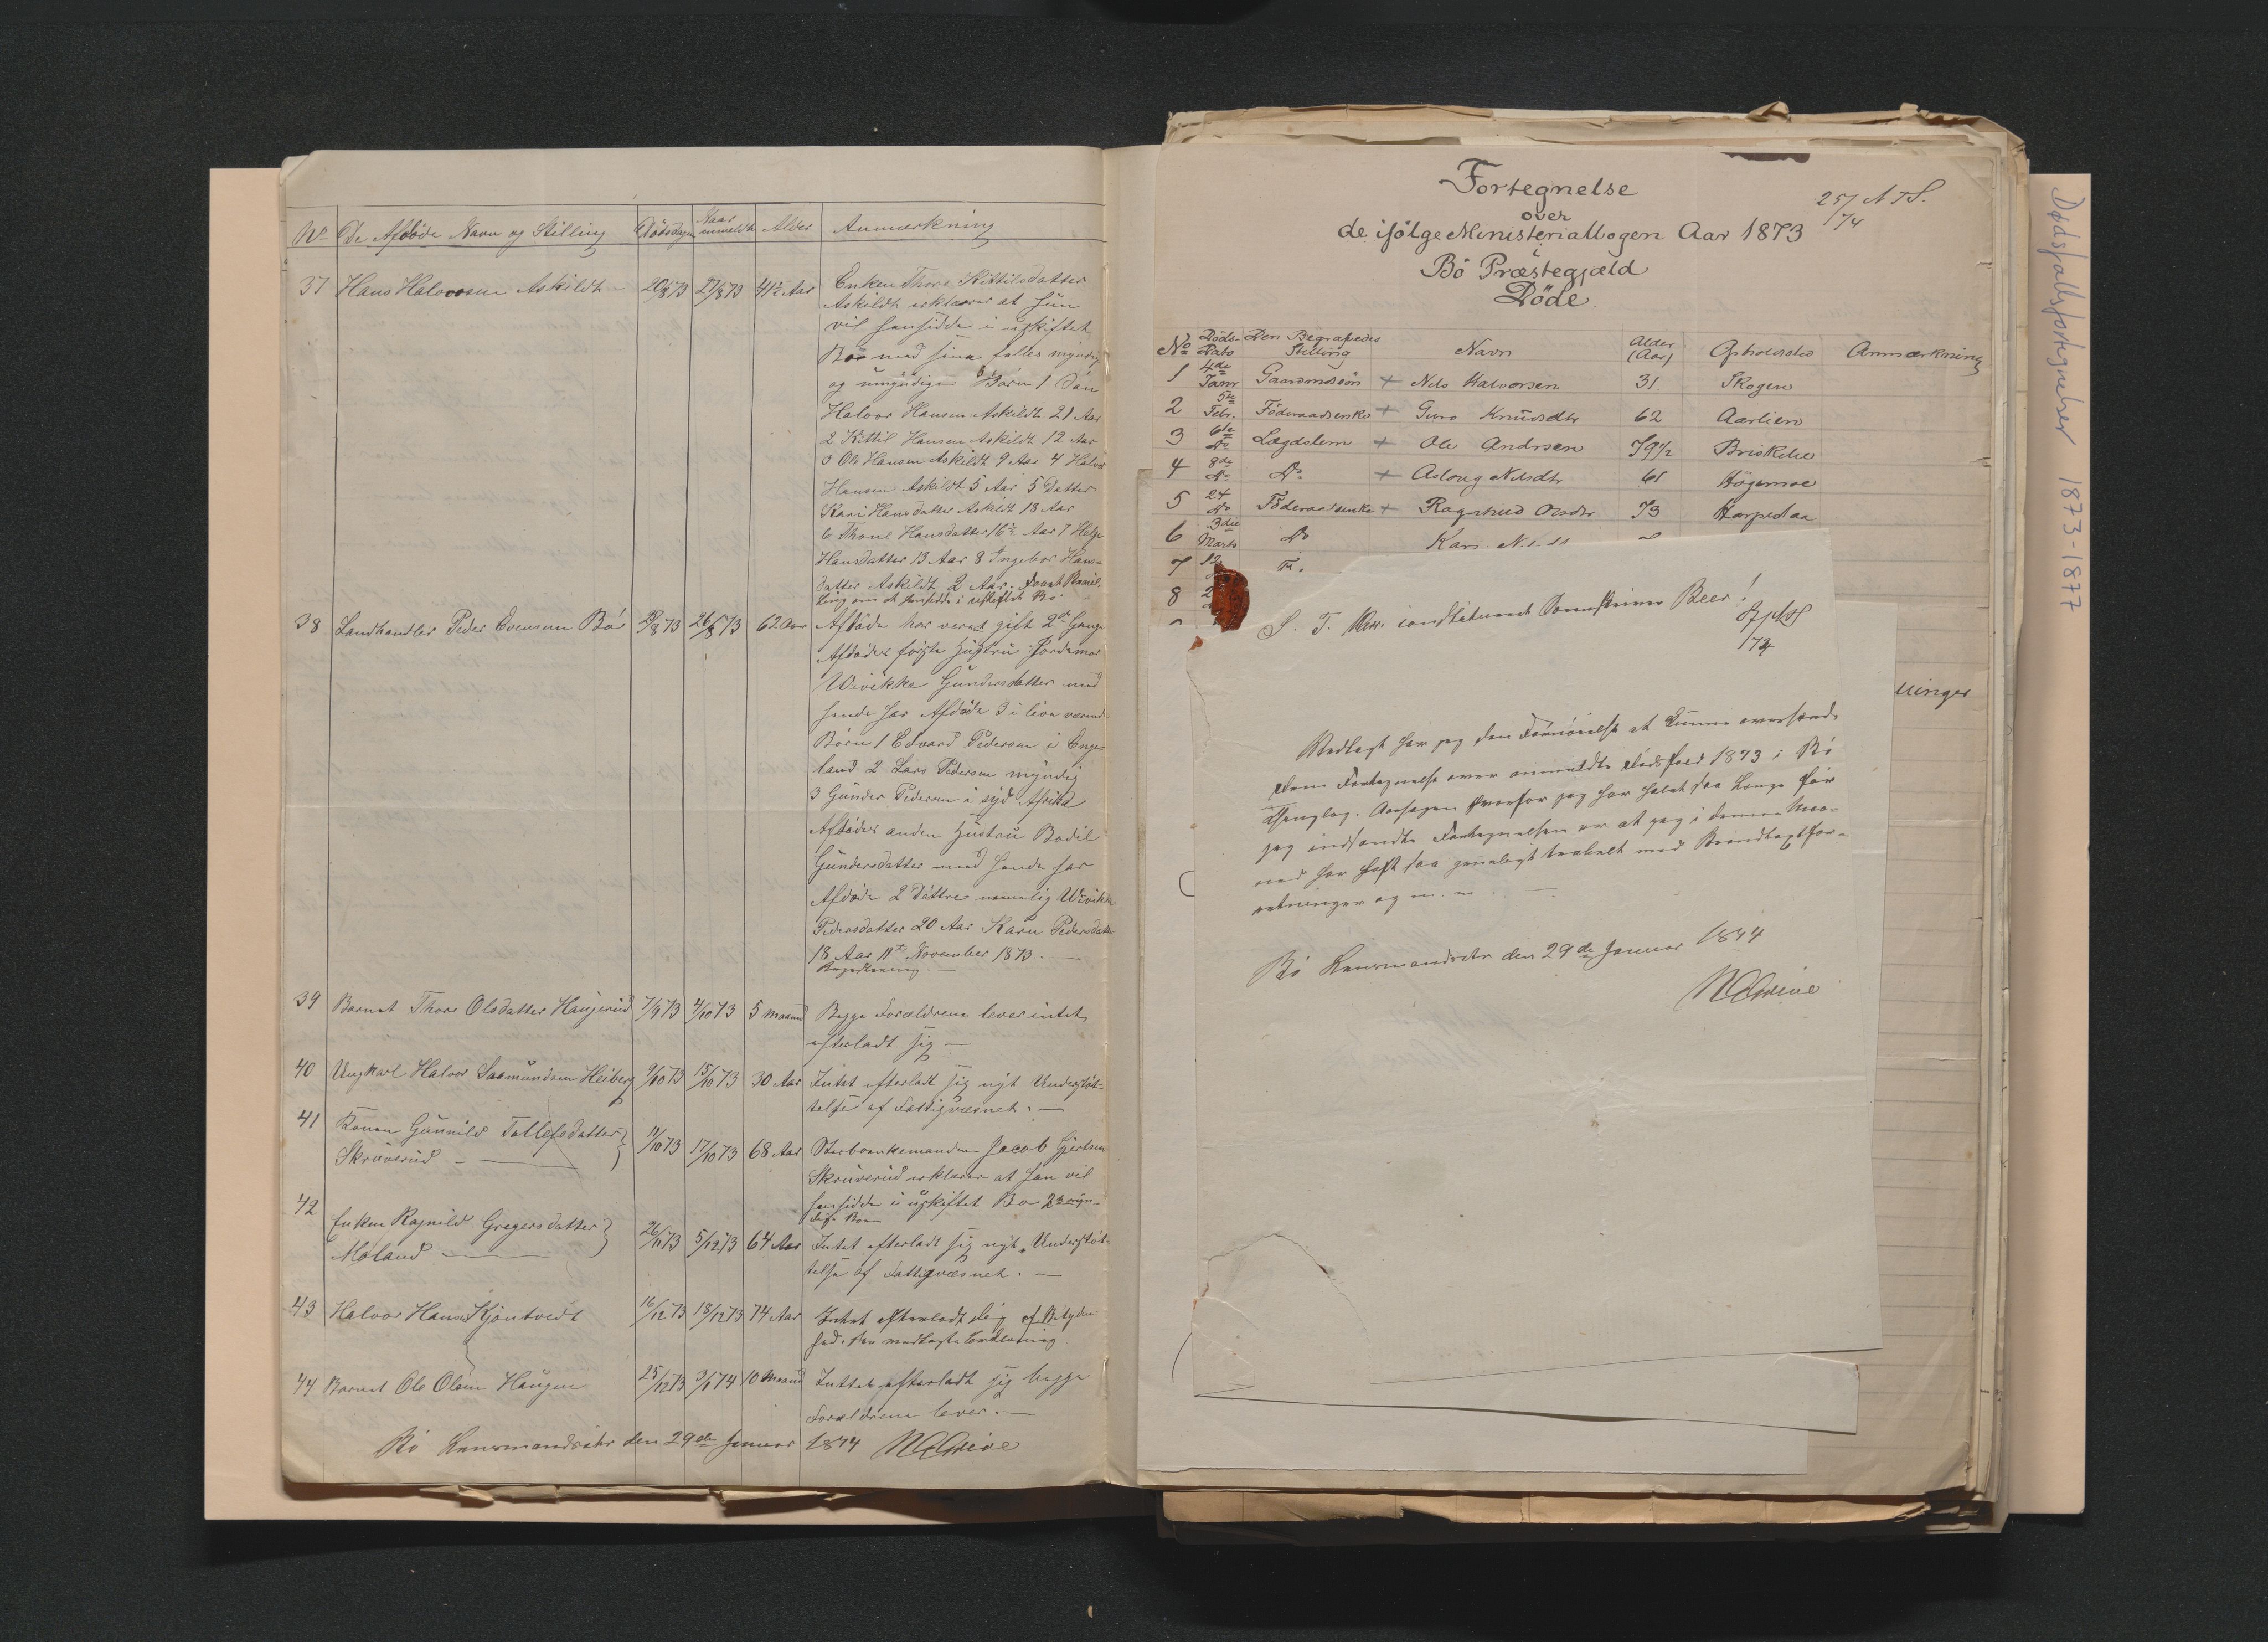 No De Afdöde Navn og Stilling Dödsdagen Naar anmeldt Alder Anmærkning
37 Hans Halvorsen Askildt 20/8 73 27/8 73 41½ Aar Enken Thore Kittilsdatter
Askildt erklærer at hun
vil hensidde i uskiftet
Bo med sine fælles myndige
og umyndige Børn 1 Søn
Halvor Hansen Askildt 21 Aar
2 Kittil Hansen Askildt 12 Aar
3 Ole Hansen Askildt 9 Aar 4 Halvor
Hansen Askildt 5 Aar 5 Datter
Kari Hansdatter Askildt 18 Aar
6 Thone Hansdatter 16½ Aar 7 Helge
Hansdatter 13 Aar 8 Ingebor Hans-
datter Askildt 2 Aar.
ling om at hensidde i uskiftet Bo.
38 Landhandler Peder Evensen Bö 26/8 73 62 Aar Afdöde har været gift 2de Gange
Afdödes förste Hustru Jordemor
Wivikke Gundersdatter med
hende har Afdöde 3 i live værende
Börn 1 Edvard Pedersen i Enge
land 2 Lars Pedersen myndig
3 Gunder Pedersen i syd Afrika
Afdödes anden Hustru Bodil
Gundersdatter med hende har
Afdöde 2 Döttre nemelig Wivikke
Pedersdatter 20 Aar Karen Pedersdatter
18 Aar 11te November 1873.
39 Barnet Thore Olsdatter Haugerud 7/9 73 4/10 73 5 Maaned Begge Forældrene lever intet
efterladt sig
40 Ungkarl Halvor Saamundsen Heiberg 9/10 73 15/10 73 30 Aar Intet efterladt sig nydt Understöt-
telse af Fattigvæsnet.
41 Konen Gunnild Tollefsdatter 11/10 73 17/10 73 68 Aar Sterboenkemanden Jacob Gjertsen
Skruverud Skruverud erklærer at han vil
hensidde i uskiftet Bo 2de myn-
dige Börn
42 Enken Ragnild Gregersdatter 26/11 73 5/12 73 64 Aar Intet efterladt sig nydt Understöt-
Moland telse af Fattigvæsnet.
43 Halvor Hansen Kjöntvedt 16/12 73 18/12 73 74 Aar Intet efterladt sig af Betyden
hed. Se vedlagte Erklæring
44 Barnet Ole Olsen Haugen 25/12 73 3/1 74 10 Maaned Intet efterladt sig begge
Forældrene lever.
Bö Lensmandsetr den 29de Januar 1874
Fortegnelse
over
de ifølge Ministerialbogen Aar 1873
i
Bö Præstegjæld
Döde
25/1 74
No Döds-Dato Den Begravedes Stilling Navn Alder (Aar) Opholdssted Anmærkning
1 4de Janr Gaardmdssön + Nils Halvorsen 31 Skogen
2 5te Febr. Föderaadsenke + Guro Knudsdtr 62 Aarlien
3 6te Do Lægdslem + Ole Andrsen 79½ Briskelie
4 8de Do Do + Asloug Nilsdtr 61 Högemoe
5 24 Do Föderaadsenke + Ragnhild Olsdtr 73 Harpedaa
6 3die Marts Do Kari
7 12
8 2
inger
S. T. Hrr. constitueret Sorenskriver Beer!
Vedlagt har jeg den Fornöielse at kunne oversende
Dem Fortegnelse over anmeldte Dödsfald 1873 i Bö
Thinglag. Aarsagen hvorfor jeg har halet saa længe för
jeg indsendte Fortegnelsen er at jeg i denne Maa-
ned har havt saa meget travelt med Brandtaxtfor-
retninger og m. m.
Bö Lensmandsetr den 29de Januar 1874
Dødsfallsfortegnelser 1873-1877